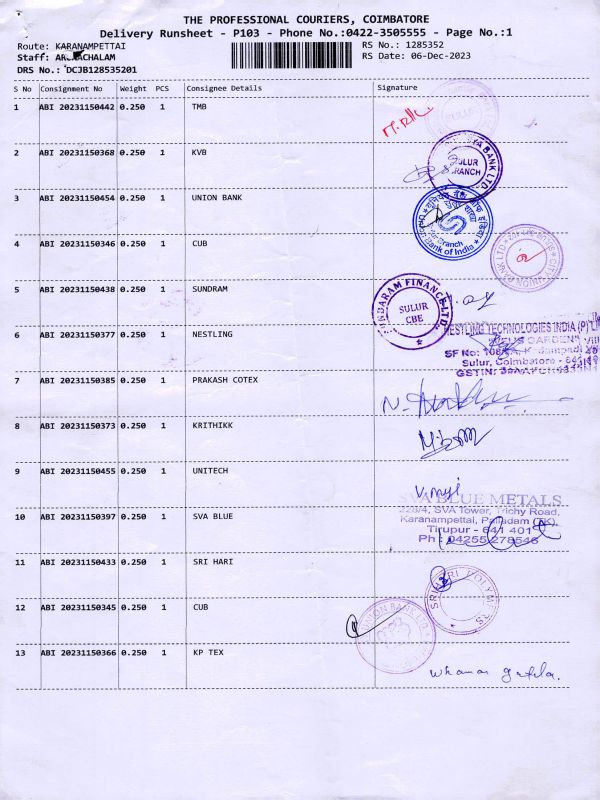 THE PROFESSIONAL COURIERS, COIMBATORE
Delivery Runsheet - P103 - Phone No.:0422-3505555 - Page No.:1
Route: KARANAMPETTAI
RS No.: 1285352
Staff: ARUNACHALAM
RS Date: 06-Dec-2023
DRS No.: DCJB128535201
S No Consignment No Weight PCS Consignee Details Signature
1 ABI 20231150442 0.250 1 TMB
2 ABI 20231150368 0.250 1 KVB
SULUR
BRANCH
BANK LTD.
3 ABI 20231150454 0.250 1 UNION BANK
Branch
Bank of India
4 ABI 20231150346 0.250 1 CUB
5 ABI 20231150438 0.250 1 SUNDRAM
SUNDARAM FINANCE LTD.
SULUR
CBE
6 ABI 20231150377 0.250 1 NESTLING
NESTLING TECHNOLOGIES INDIA (P)
GARDEN"
SF No:
Sulur, Coimbatore -
GSTIN:
7 ABI 20231150385 0.250 1 PRAKASH COTEX
8 ABI 20231150373 0.250 1 KRITHIKK
9 ABI 20231150455 0.250 1 UNITECH
10 ABI 20231150397 0.250 1 SVA BLUE
SVA BLUE METALS
228/4, SVA Tower, Trichy Road,
Karanampettai, Palladam (TK),
Tirupur - 641 401
Ph : 04255 278546
11 ABI 20231150433 0.250 1 SRI HARI
SRI HARI POLYMERS
12 ABI 20231150345 0.250 1 CUB
UNION BANK LTD
13 ABI 20231150366 0.250 1 KP TEX